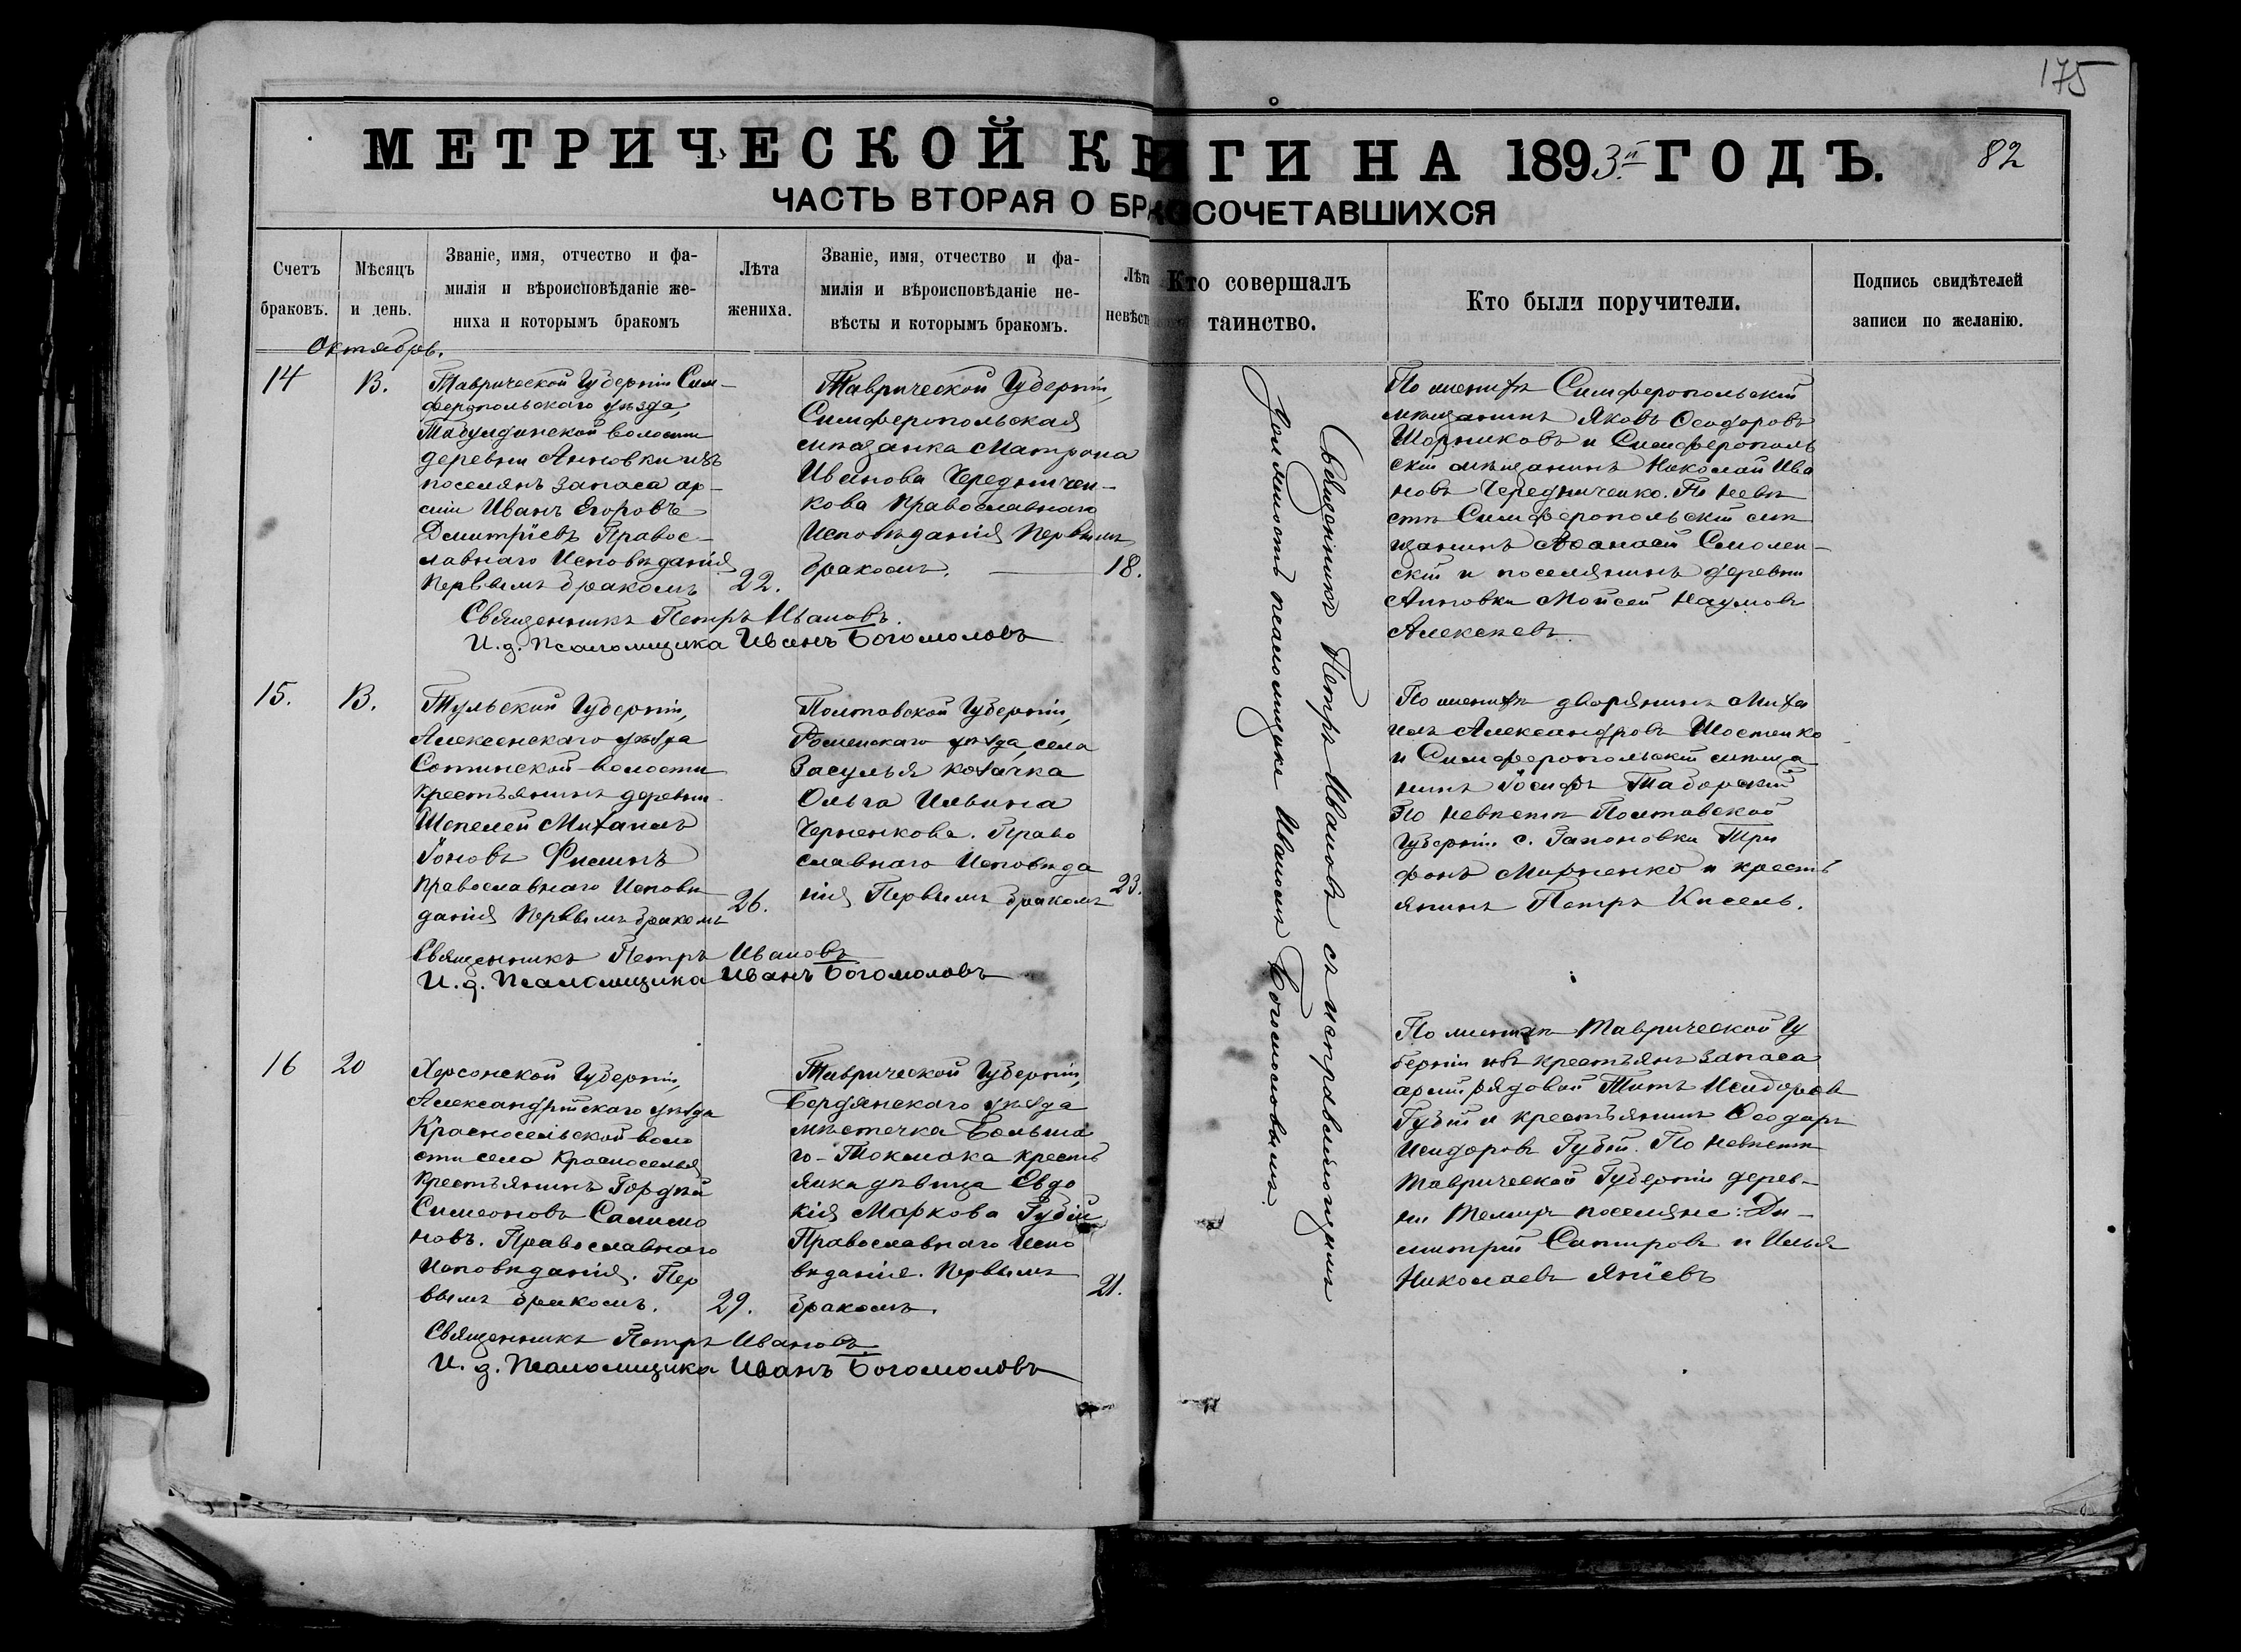 175
МЕТРИЧЕСКОЙ КНИГИ НА 1893й ГОДЪ.
82
ЧАСТЬ ВТОРАЯ О БРАКОСОЧЕТАВШИХСЯ
Счетъ браковъ.
Мѣсяцъ и день.
Званіе, имя, отчество и фа-
милія и вѣроисповѣданіе же-
ниха и которымъ бракомъ
Лѣта
жениха.
Званіе, имя, отчество и фа-
милія и вѣроисповѣданіе не-
вѣсты и которымъ бракомъ.
Лѣта
невѣсты
Кто совершалъ
таинство.
Кто были поручители.
Подпись свидѣтелей
записи по желанію.
Октябрь.
14
13.
Таврической Губерніи Сим-
феропольскаго уѣзда,
Табулдинской волости
деревни Анновки изъ
поселянъ запаса ар-
міи Иванъ Егоровъ
Дмитріевъ Правос-
лавнаго Исповѣданія
первымъ бракомъ
22.
Таврической Губерніи,
Симферопольская
мѣщанка Матрона
Иванова Череднічен-
кова Православнаго
Исповѣданія Первымъ
бракомъ.
18.
Священникъ Петръ Ивановъ.
И. д. Псаломщика Иванъ Богомоловъ
Священникъ Петръ Ивановъ съ исправляющимъ
должность псаломщика Иваномъ Богомоловымъ.
По женихѣ Симферопольскій
мѣщанинъ Яковъ Ѳеодоровъ
Шорниковъ и Симферополь
скій мѣщанинъ Николай Ива
новъ Чередниченко. По невѣ
стѣ Симферопольскій мѣ
щанинъ Аѳанасій Смолен-
скій и поселянинъ деревни
Анновки Моисей Наумовъ
Алексѣевъ.
15.
13.
Тульской Губерніи,
Алексенскаго уѣзда
Сотинской волости
крестьянинъ деревни
Шепелей Михаилъ
Іоновъ Фисинъ
Православнаго Исповѣ
данія первымъ бракомъ
26.
Полтавской Губерніи,
Роменскаго уѣзда, села
Засулья козачка
Ольга Ильина
Черненкова. Право
славнаго Исповѣда
нія Первымъ бракомъ
23.
Священникъ Петръ Ивановъ
И. д. Псаломщика Иванъ Богомоловъ
По женихѣ дворянинъ Миха
илъ Александровъ Шостенко
и Симферопольскій мѣща
нинъ Іосифъ Таборскій
По невѣстѣ Полтавской
Губерніи с. Гапоновки Три
фонъ Мирненко и кресть
янинъ Петръ Кисель.
16
20
Херсонской Губерніи,
Александрійскаго уѣзда
Красносельской воло
сти села Красноселья
Крестьянинъ Гордѣй
Симеоновъ Салимо
новъ. Православнаго
Исповѣданія. Пер
вымъ бракомъ.
29.
Таврической Губерніи,
Бердянскаго уѣзда
мѣстечка Больша
го-Токмака кресть
янка дѣвица Евдо
кія Маркова Губій
Православнаго Испо
вѣданія. Первымъ
бракомъ.
21.
Священникъ Петръ Ивановъ
И. д. Псаломщика Иванъ Богомоловъ
По женихѣ Таврической Гу
берніи изъ крестьянъ запаса
арміи рядовой Титъ Исидоровъ
Губій и крестьянинъ Ѳеодоръ
Исидоровъ Губій. По невѣстѣ
Таврической Губерніи дерев-
ни Темиръ поселяне: Ди-
митрій Сатировъ и Илья
Николаевъ Яніевъ